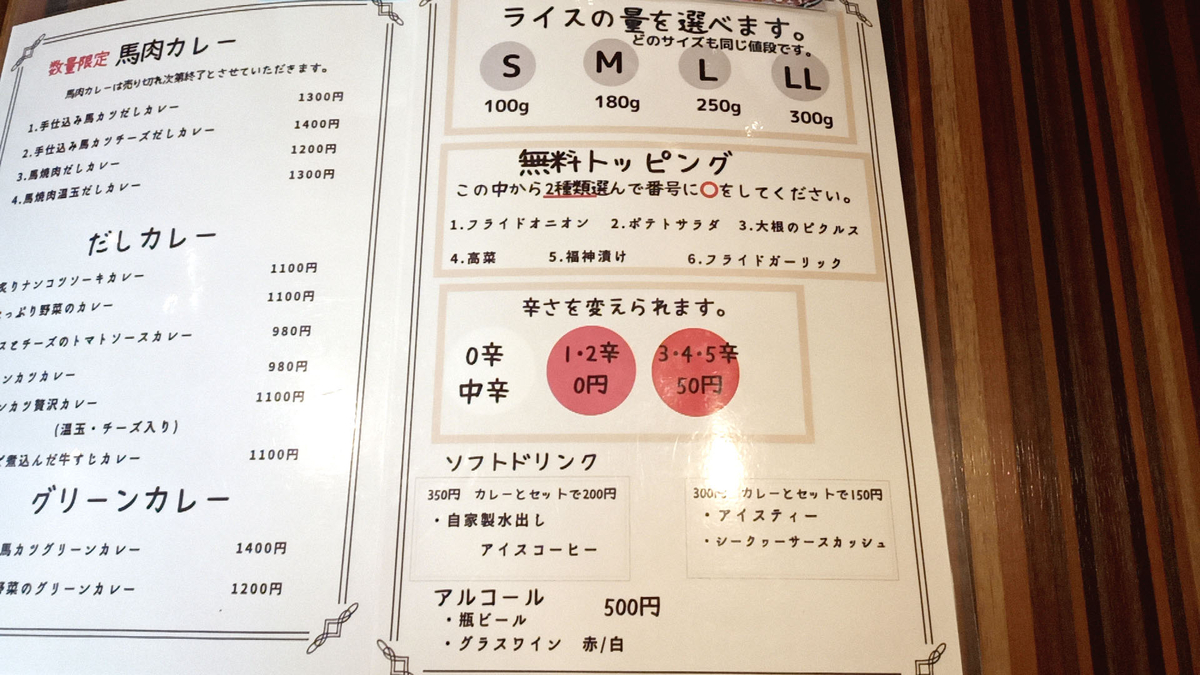 数量限定 馬肉カレー
馬肉カレーは売り切れ次第終了とさせていただきます。
1.手仕込み馬カツだしカレー 1300円
2.手仕込み馬カツチーズだしカレー 1400円
3.馬焼肉だしカレー 1200円
4.馬焼肉温玉だしカレー 1300円
だしカレー
炙りナンコツソーキカレー 1100円
っぷり野菜のカレー 1100円
スとチーズのトマトソースカレー 980円
ンカツカレー 980円
ンカツ贅沢カレー 1100円
(温玉・チーズ入り)
煮込んだ牛すじカレー 1100円
グリーンカレー
馬カツグリーンカレー 1400円
野菜のグリーンカレー 1200円
ライスの量を選べます。
どのサイズも同じ値段です。
S M L LL
100g 180g 250g 300g
無料トッピング
この中から2種類選んで番号に○をしてください。
1.フライドオニオン 2.ポテトサラダ 3.大根のピクルス
4.高菜 5.福神漬け 6.フライドガーリック
辛さを変えられます。
0辛 1・2辛 3・4・5辛
中辛 0円 50円
ソフトドリンク
350円 カレーとセットで200円
・自家製水出し
アイスコーヒー
300円 カレーとセットで150円
・アイスティー
・シークヮーサースカッシュ
アルコール 500円
・瓶ビール
・グラスワイン 赤/白